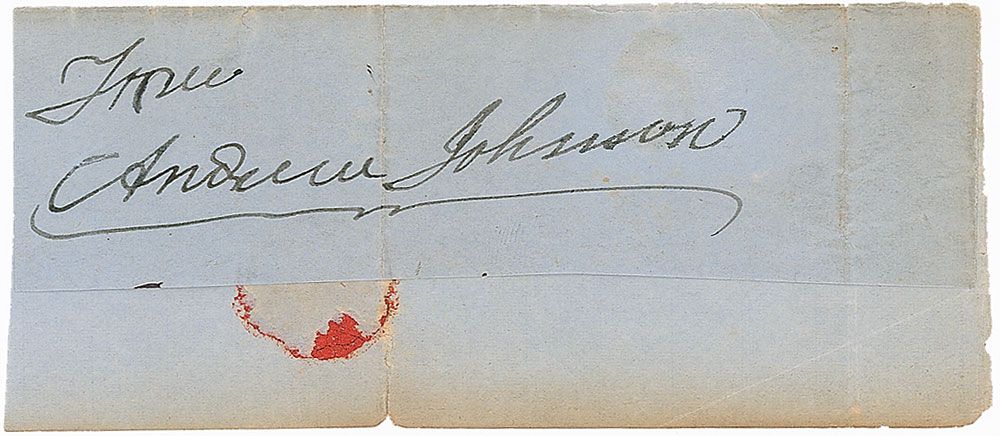 Free
Andrew Johnson